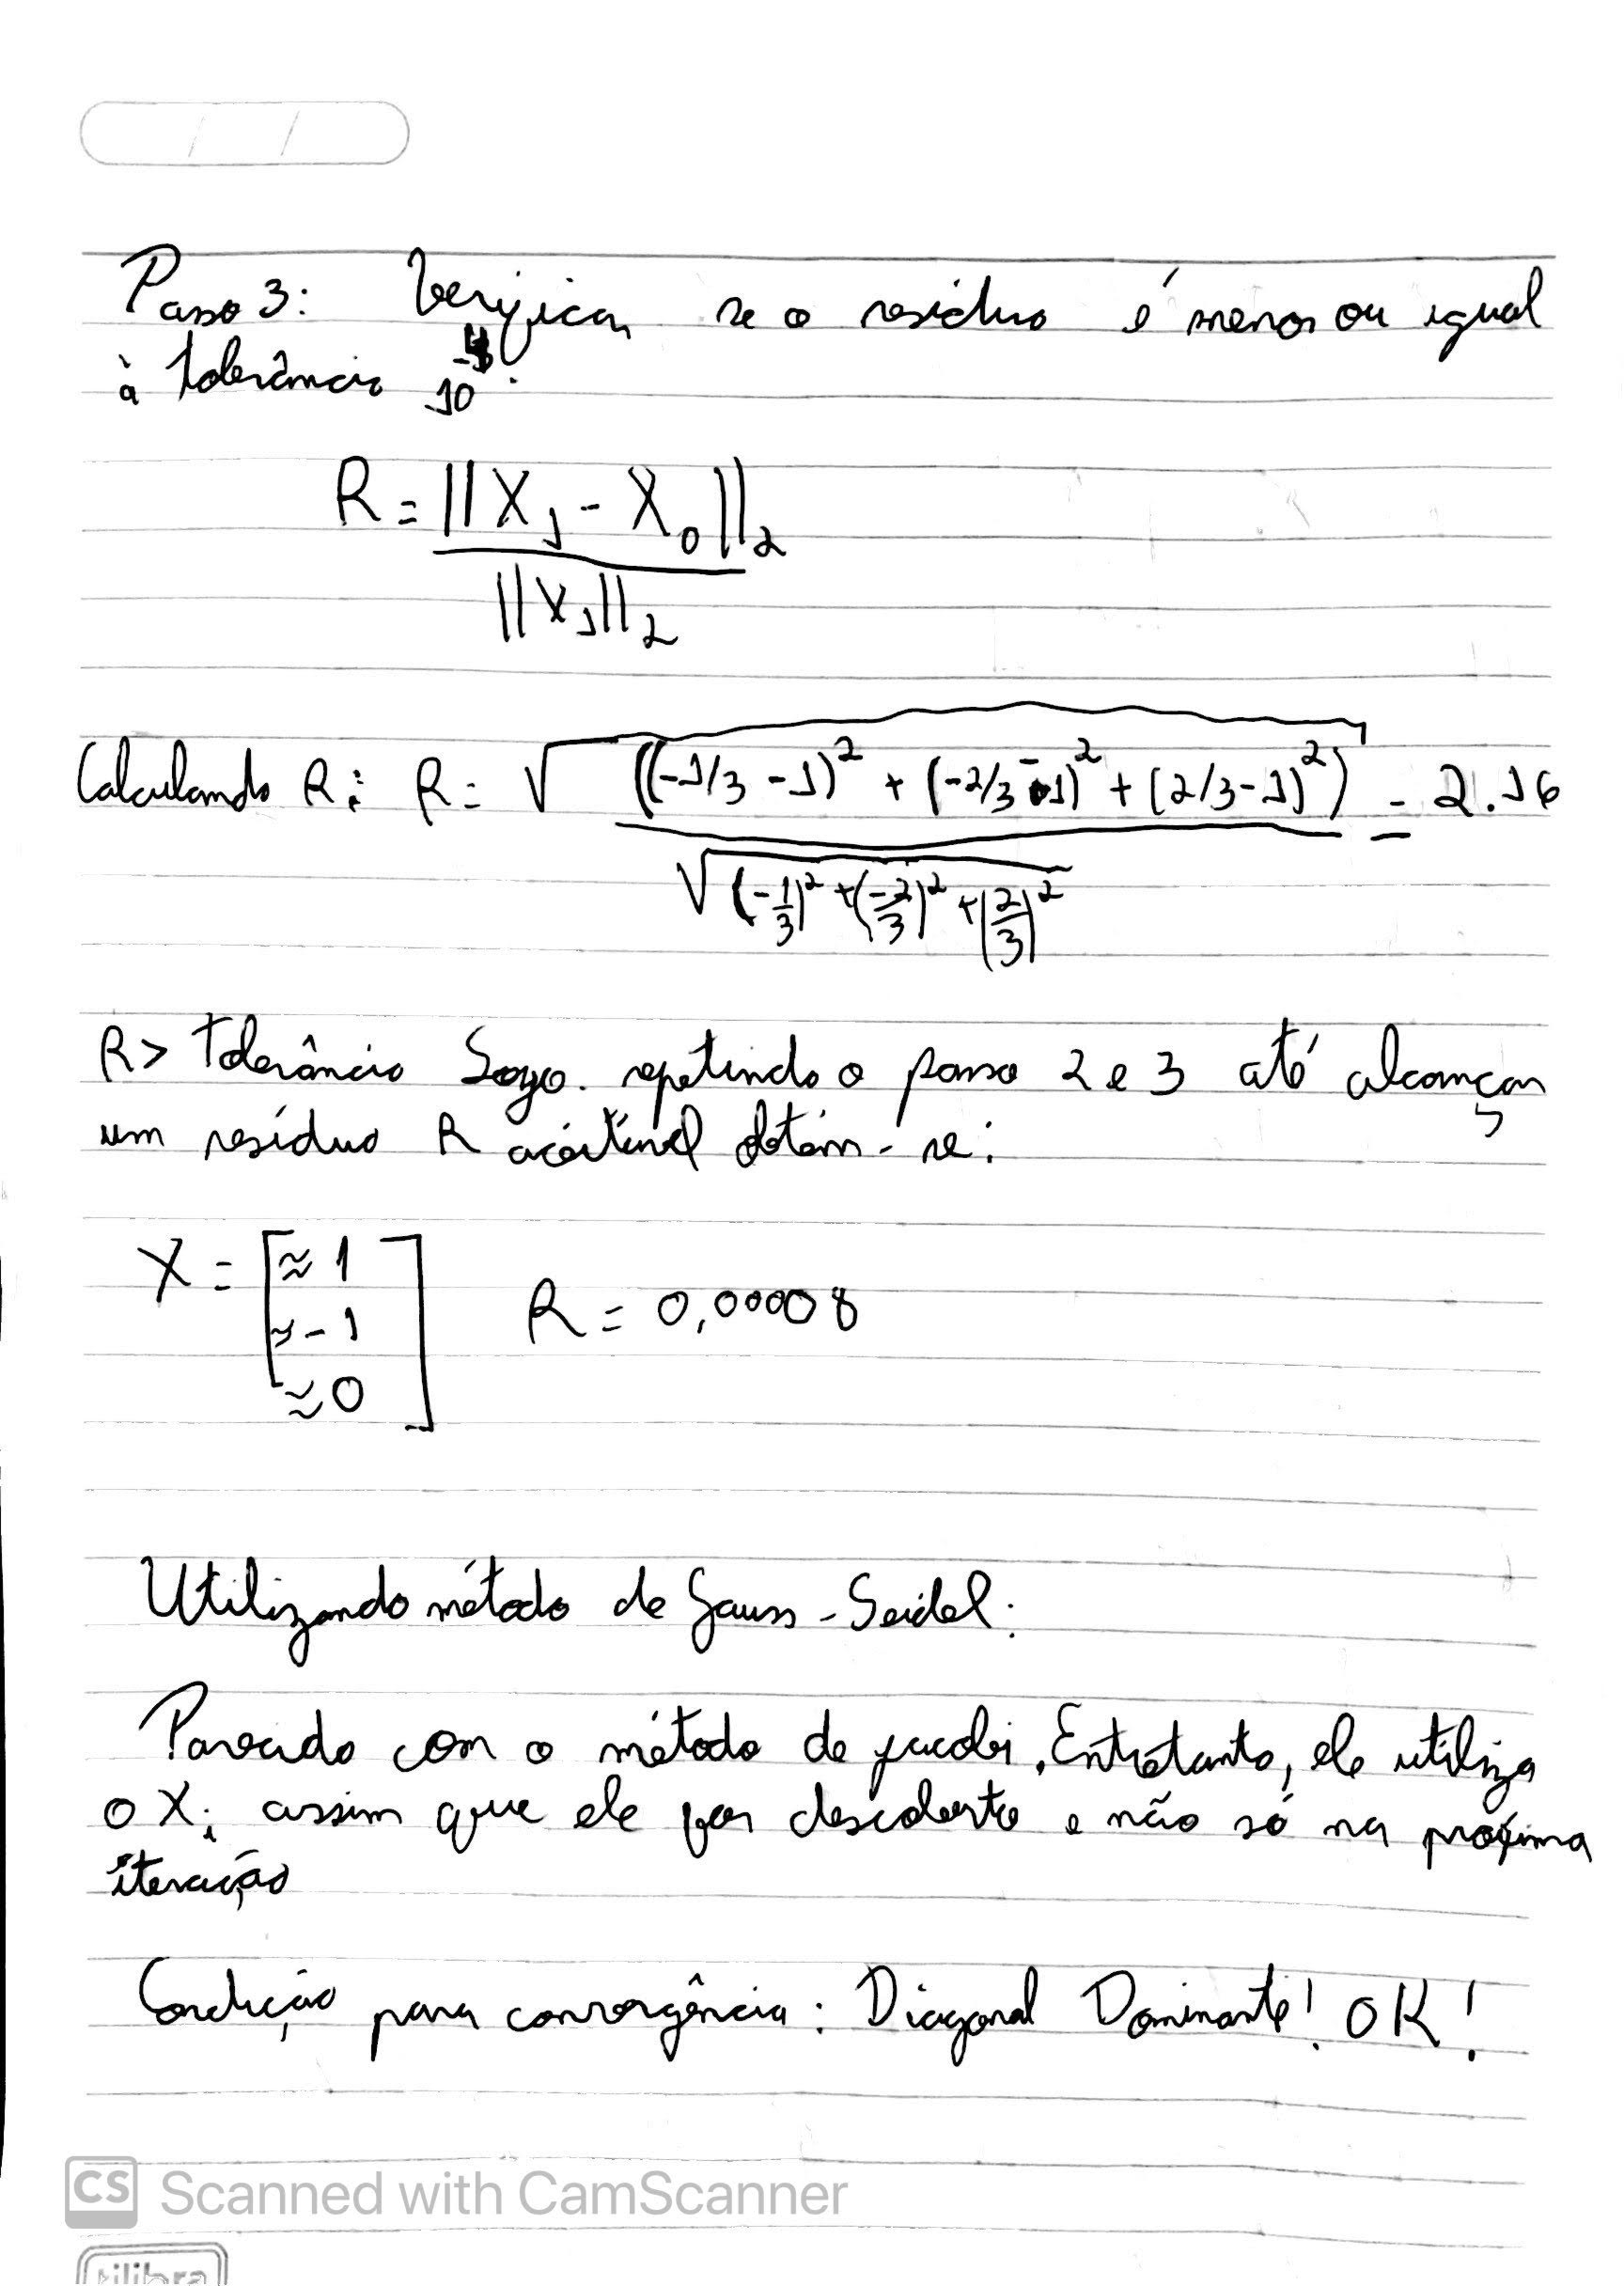 / /
Passo 3: Verificar se o resíduo é menor ou igual
à tolerância 10^-4.
R = ||X₁ - X₀||₂
||X₁||₂
Calculando R: R = √((-1/3 - 1)² + (-2/3 - 1)² + (2/3 - 1)²) = 2.16
√(-1/3)² + (-2/3)² + (2/3)²
R > Tolerância Logo. repetindo o passo 2 e 3 até alcançar
um resíduo R aceitável obtém-se:
X = [≈ 1
≈ -1 R = 0,00008
≈ 0]
Utilizando método de Gauss-Seidel:
Parecido com o método de jacobi. Entretanto, ele utiliza
o Xᵢ assim que ele for descoberto e não só na próxima
iteração
Condição para convergência: Diagonal Dominante! OK!
CS Scanned with CamScanner
tilibra